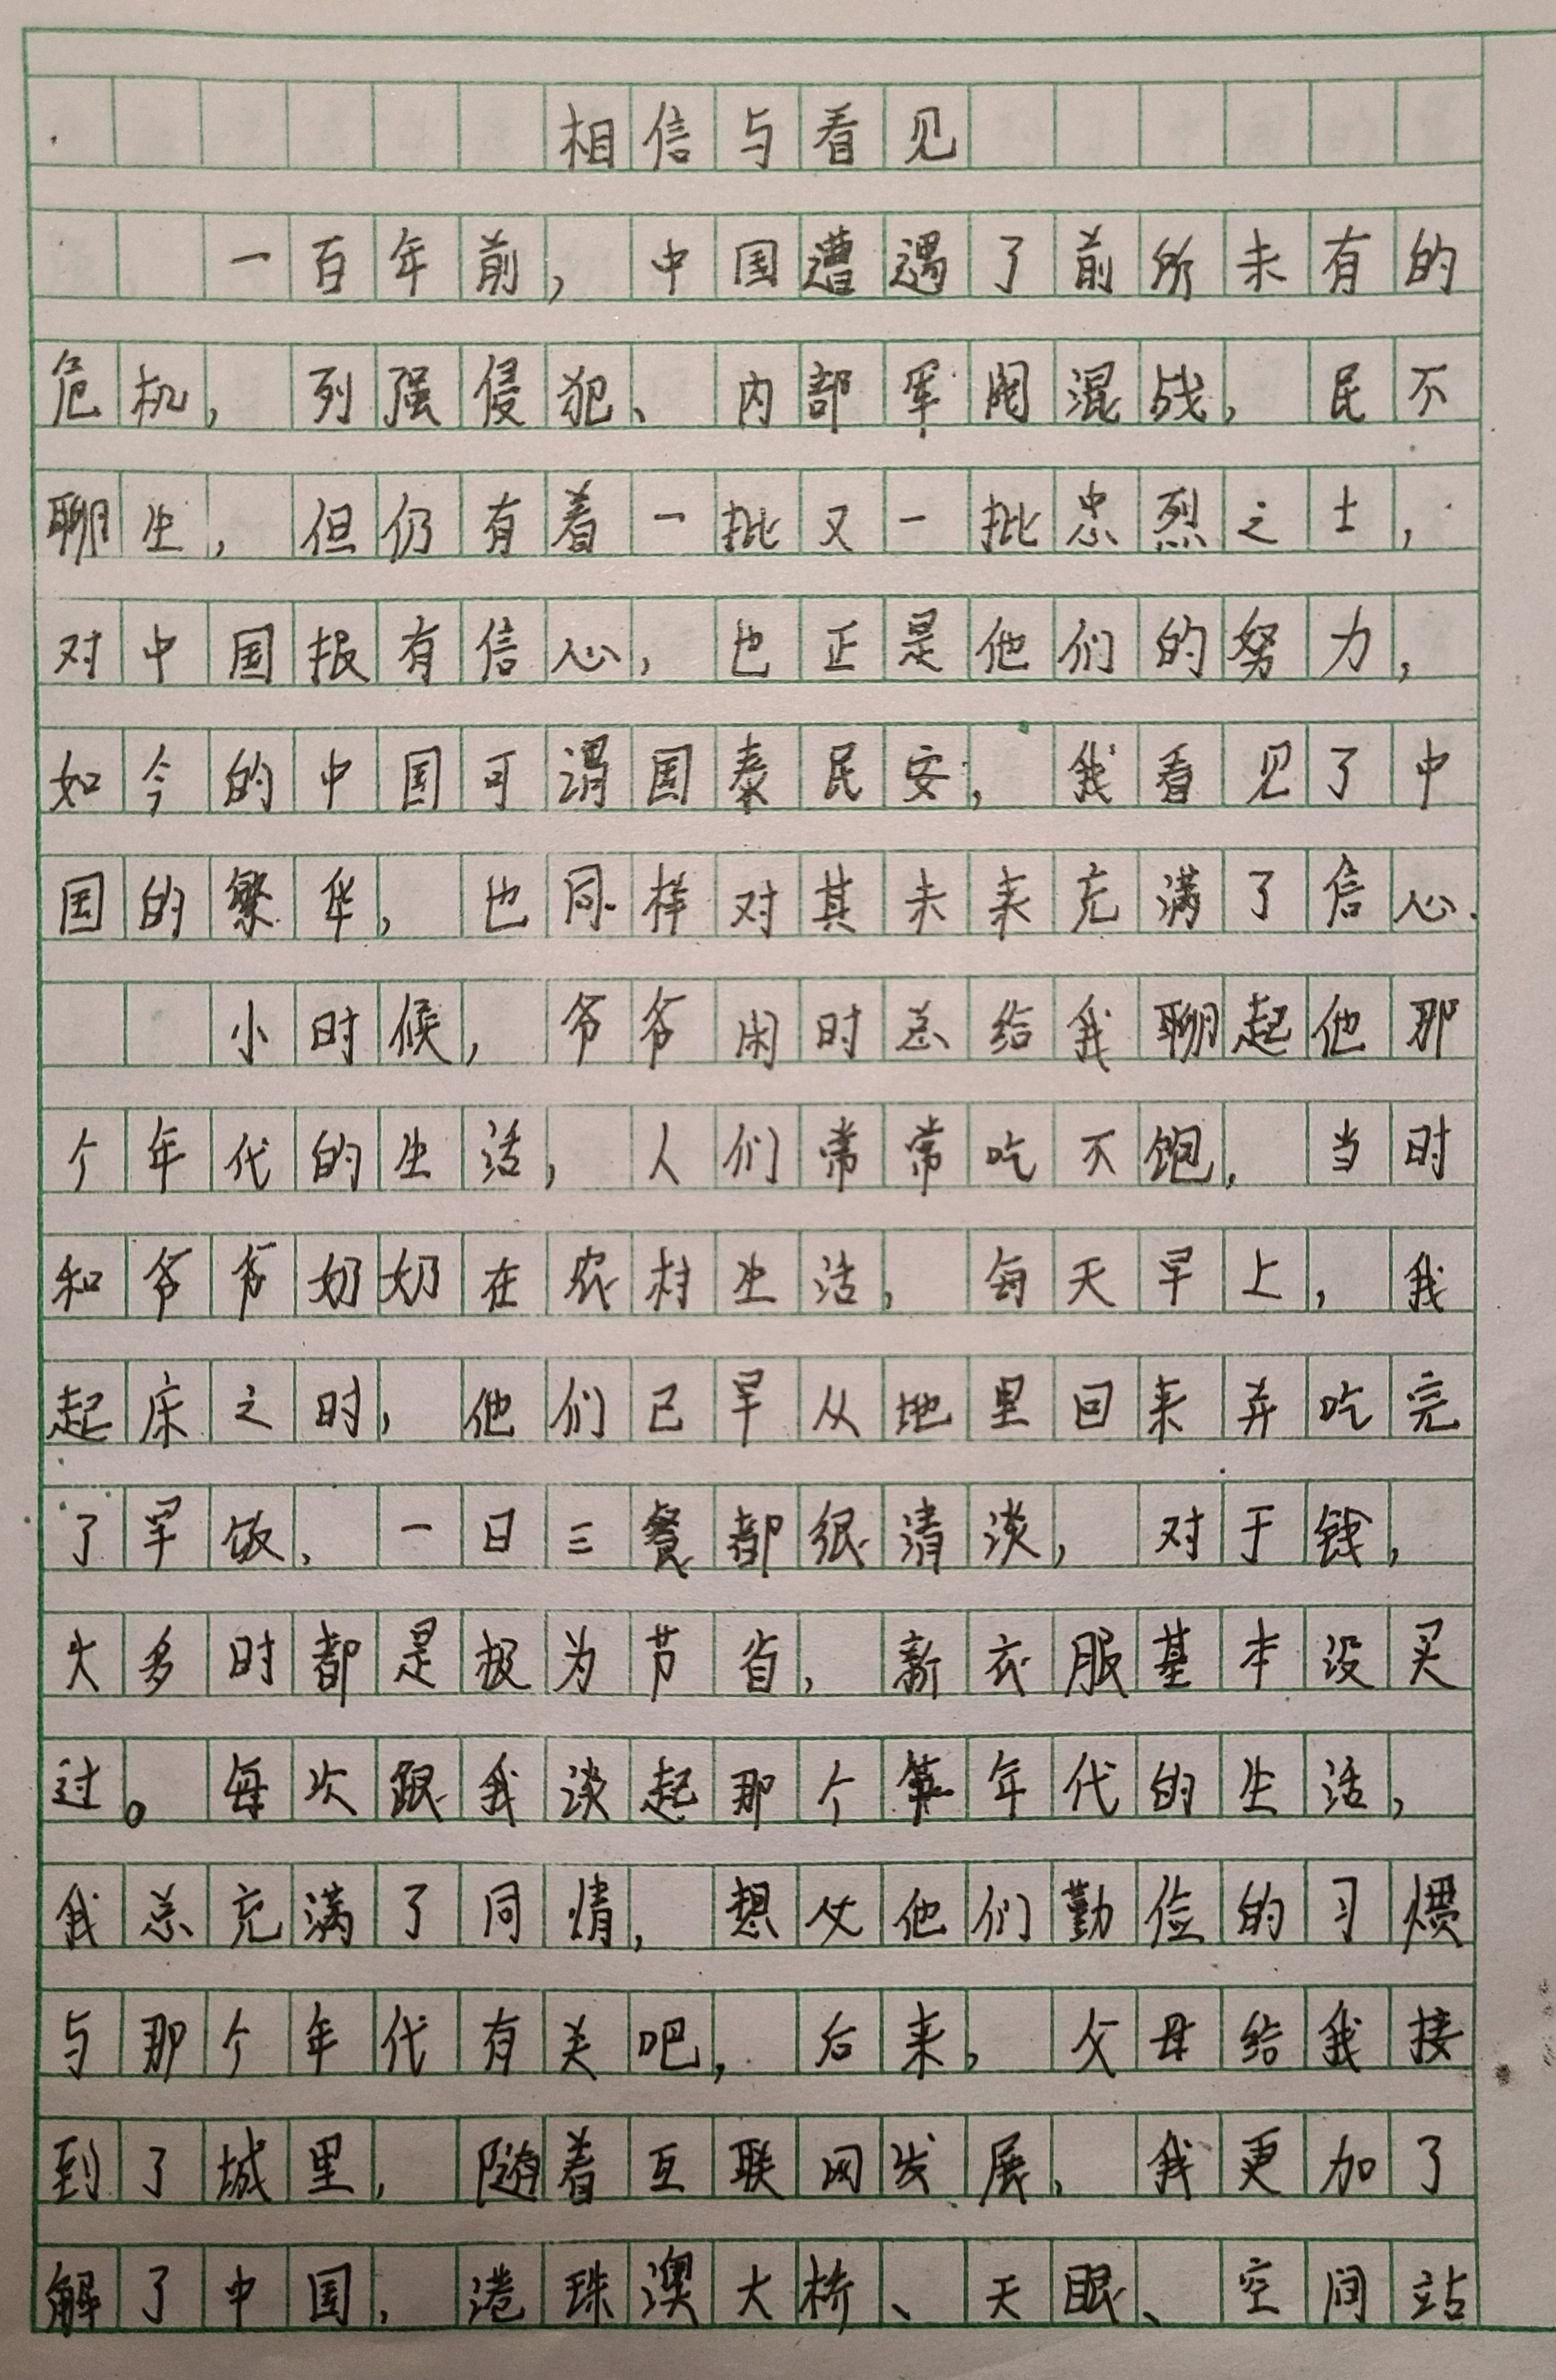 相信与看见
一百年前，中国遭遇了前所未有的
危机，列强侵犯、内部军阀混战，民不
聊生，但仍有着一批又一批忠烈之士，
对中国报有信心，也正是他们的努力，
如今的中国可谓国泰民安，我看见了中
国的繁华，也同样对其未来充满了信心.
小时候，爷爷闲时总给我聊起他那
个年代的生活，人们常常吃不饱，当时
和爷爷奶奶在农村生活，每天早上，我
起床之时，他们已早从地里回来并吃完
了早饭，一日三餐都很清淡，对于钱，
大多时都是极为节省，新衣服基本没买
过。每次跟我谈起那个年代的生活，
我总充满了同情，想必他们勤俭的习惯
与那个年代有关吧，后来，父母给我接
到了城里，随着互联网发展，我更加了
解了中国，港珠澳大桥、天眼、空间站